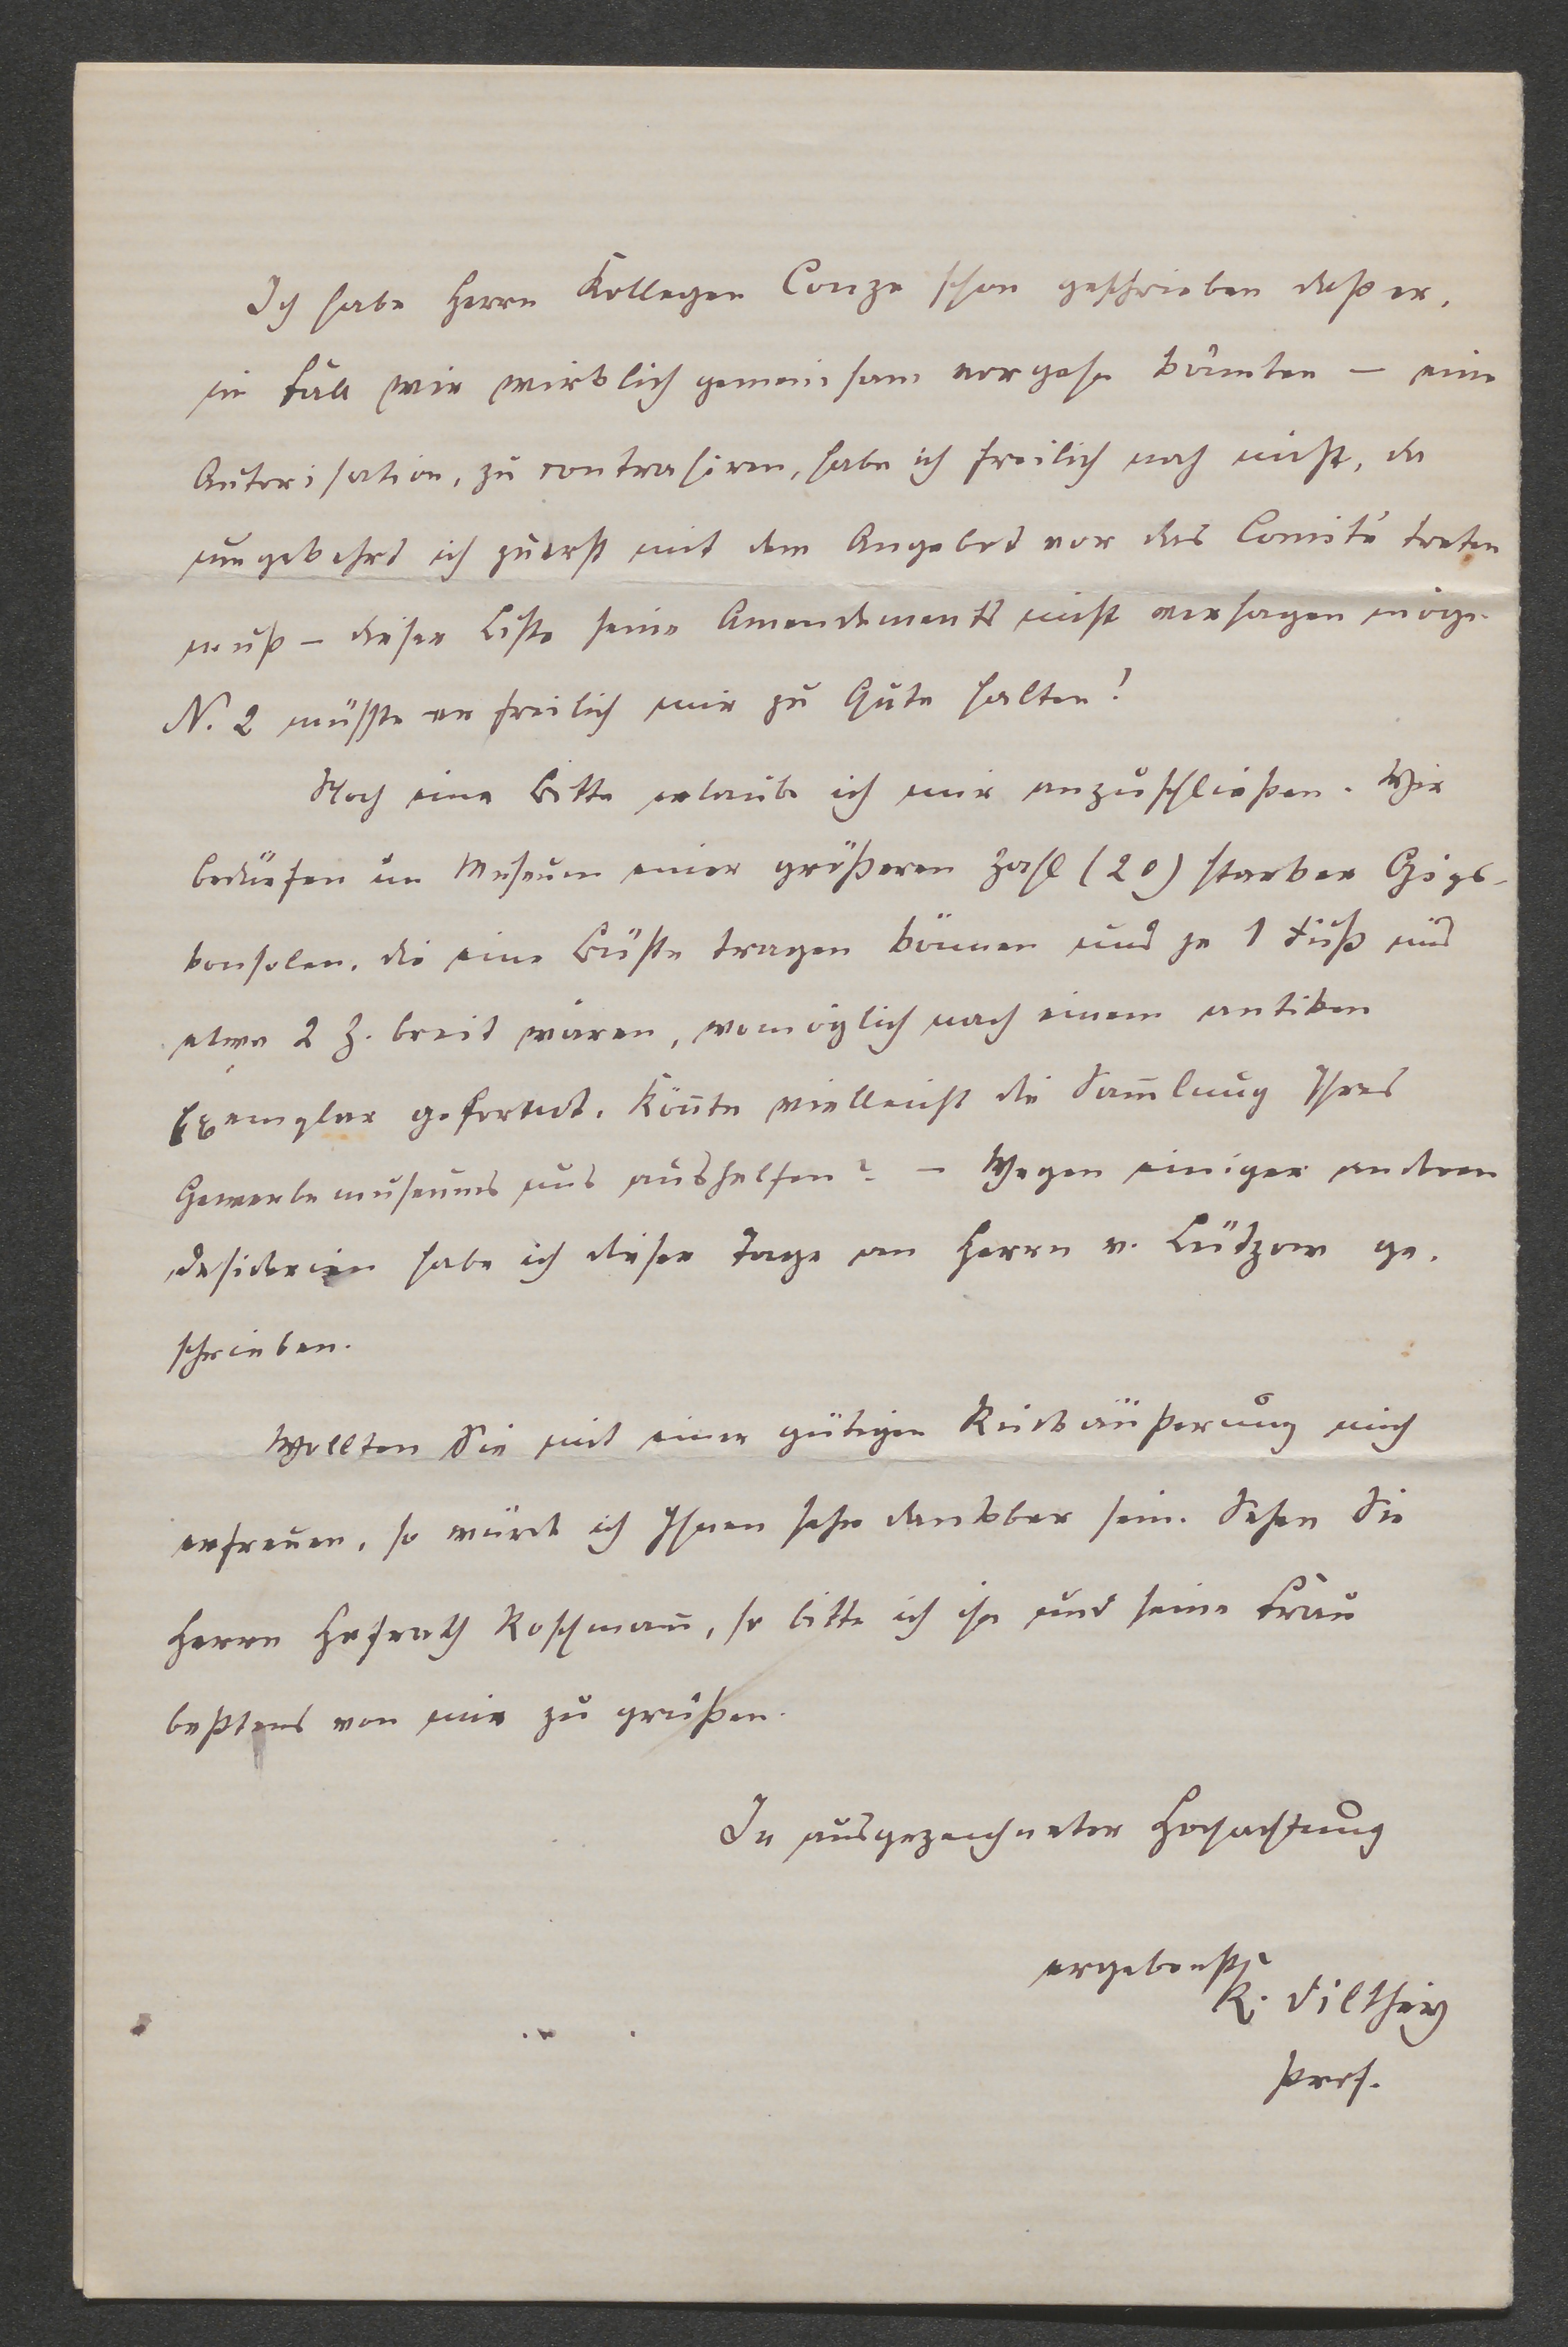 Ich habe Herrn Kollegen Conze schon geschrieben daß er,
im Fall wir wirklich gemeinsam vorgehn könnten – eine
Autorisation, zu contrahiren, habe ich freilich noch nicht, da
umgekehrt ich zuerst mit dem Angebot vor das Comité treten
muß – dieser Liste seine Amendements nicht versagen möge.
N. 2 müßte er freilich mir zu Gute halten!
Noch eine Bitte erlaube ich mir anzuschließen. Wir
bedürfen im Museum einer größeren Zahl (20) starker Gips-
konsolen, die eine Büste tragen können und je 1 Fuß und
etwa 2 Z. breit wären, womöglich nach einem antiken
Exemplar gefertigt. Kön̄te vielleicht die Sam̄lung Ihres
Gewerbemuseums uns aushelfen? – Wegen einiger andren
Desiderien habe ich dieser Tage an Herrn v. Lützow ge-
schrieben.
Wollten Sie mit einer gütigen Rückäußerung mich
erfreuen, so würde ich Ihnen sehr dankbar sein. Sehen Sie
Herrn Hofrath Roschman̄, so bitte ich ihn und seine Frau
beßtens von mir zu grüßen.
In ausgezeichneter Hochachtung
ergebenst
K. Dilthey
Prof.